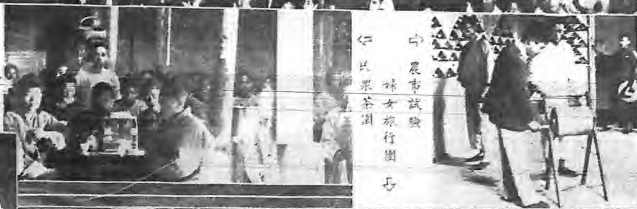 農事試驗
婦女旅行團
民眾茶園